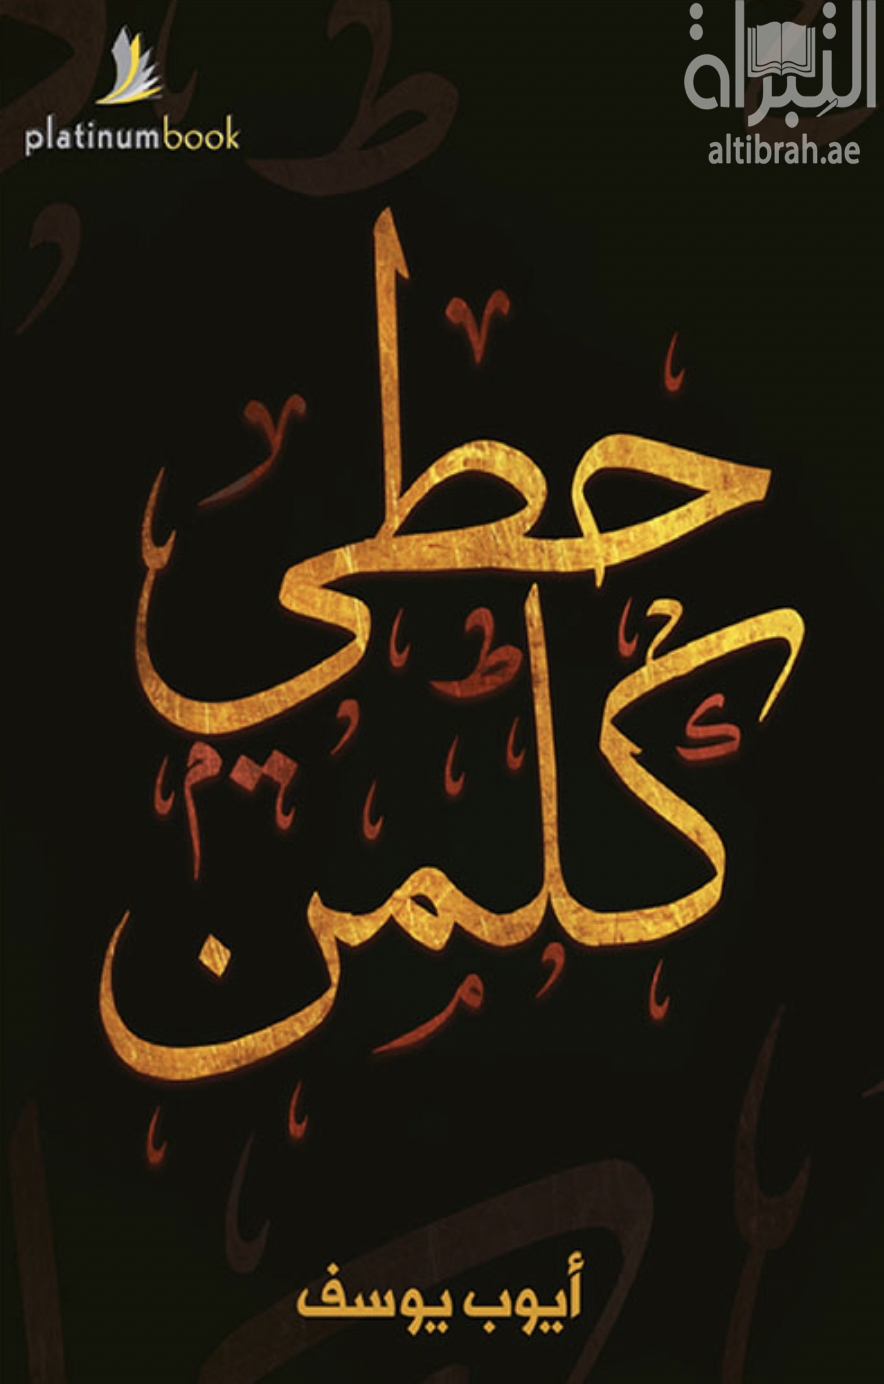 platinumbook
التبراة
altibrah.ae
حطي
كلمن
أيوب يوسف